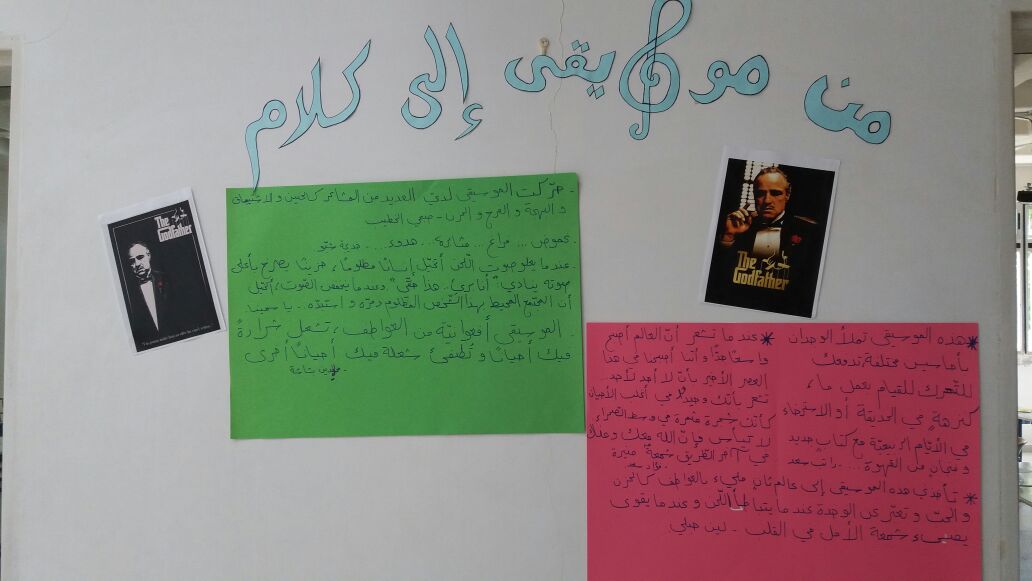 من موسيقى إلى كلام
The
Godfather
The
Godfather
- حرّكت الموسيقى لدي العديد من المشاعر كالحنين والاشتياق
و البهجة و الفرح و الحزن -
- غموض ... فراغ ... مشاعر ... هدوء ...
- عندما يعلو صوت اللّحن أتخيّل إنسانًا مظلومًا، حزينًا يصرخ بأعلى
صوته ينادي: "أنا بريء، هذا حقّي". وعندما ينخفض الصّوت، أتخيّل
أنّ المجتمع المحيط بهذا الشّخص المظلوم دمّره و
- الموسيقى أفعوانيّة من العواطف، تشعل شرارةً
فيك أحيانًا و تُطفئ شعلة فيك أحيانًا أخرى
* هذه الموسيقى تملأ الوجدان
بأحاسيس مختلفة، تدفعك
للتّحرك للقيام بعمل ما،
كنزهةٍ في الحديقة أو الاسترخاء
في الأيّام الربيعيّة مع كتابٍ جديد
و فنجان من القهوة ...
* عندما تشعر أنّ العالم أصبح
واسعًا جدًّا و أننا أصبحنا في هذا
العصر الأخير بأنّ لا أحد لأحد
تشعر بأنّك وحيدًا في أغلب الأحيان
كأنّك شجرة مثمرة في وسط الصّحراء
لا تيأس فإنّ الله معك وعلّك
في آخر الطّريق شمعة منيرة
* تأخذني هذه الموسيقى إلى عالم ثانٍ مليء بالعواطف كالحزن
و الحبّ و تعبّر عن الوحدة عندما يتباطأ اللّحن و عندما يقوى
يضيء شمعة الأمل في القلب -